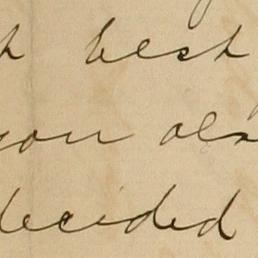 best
you
decided